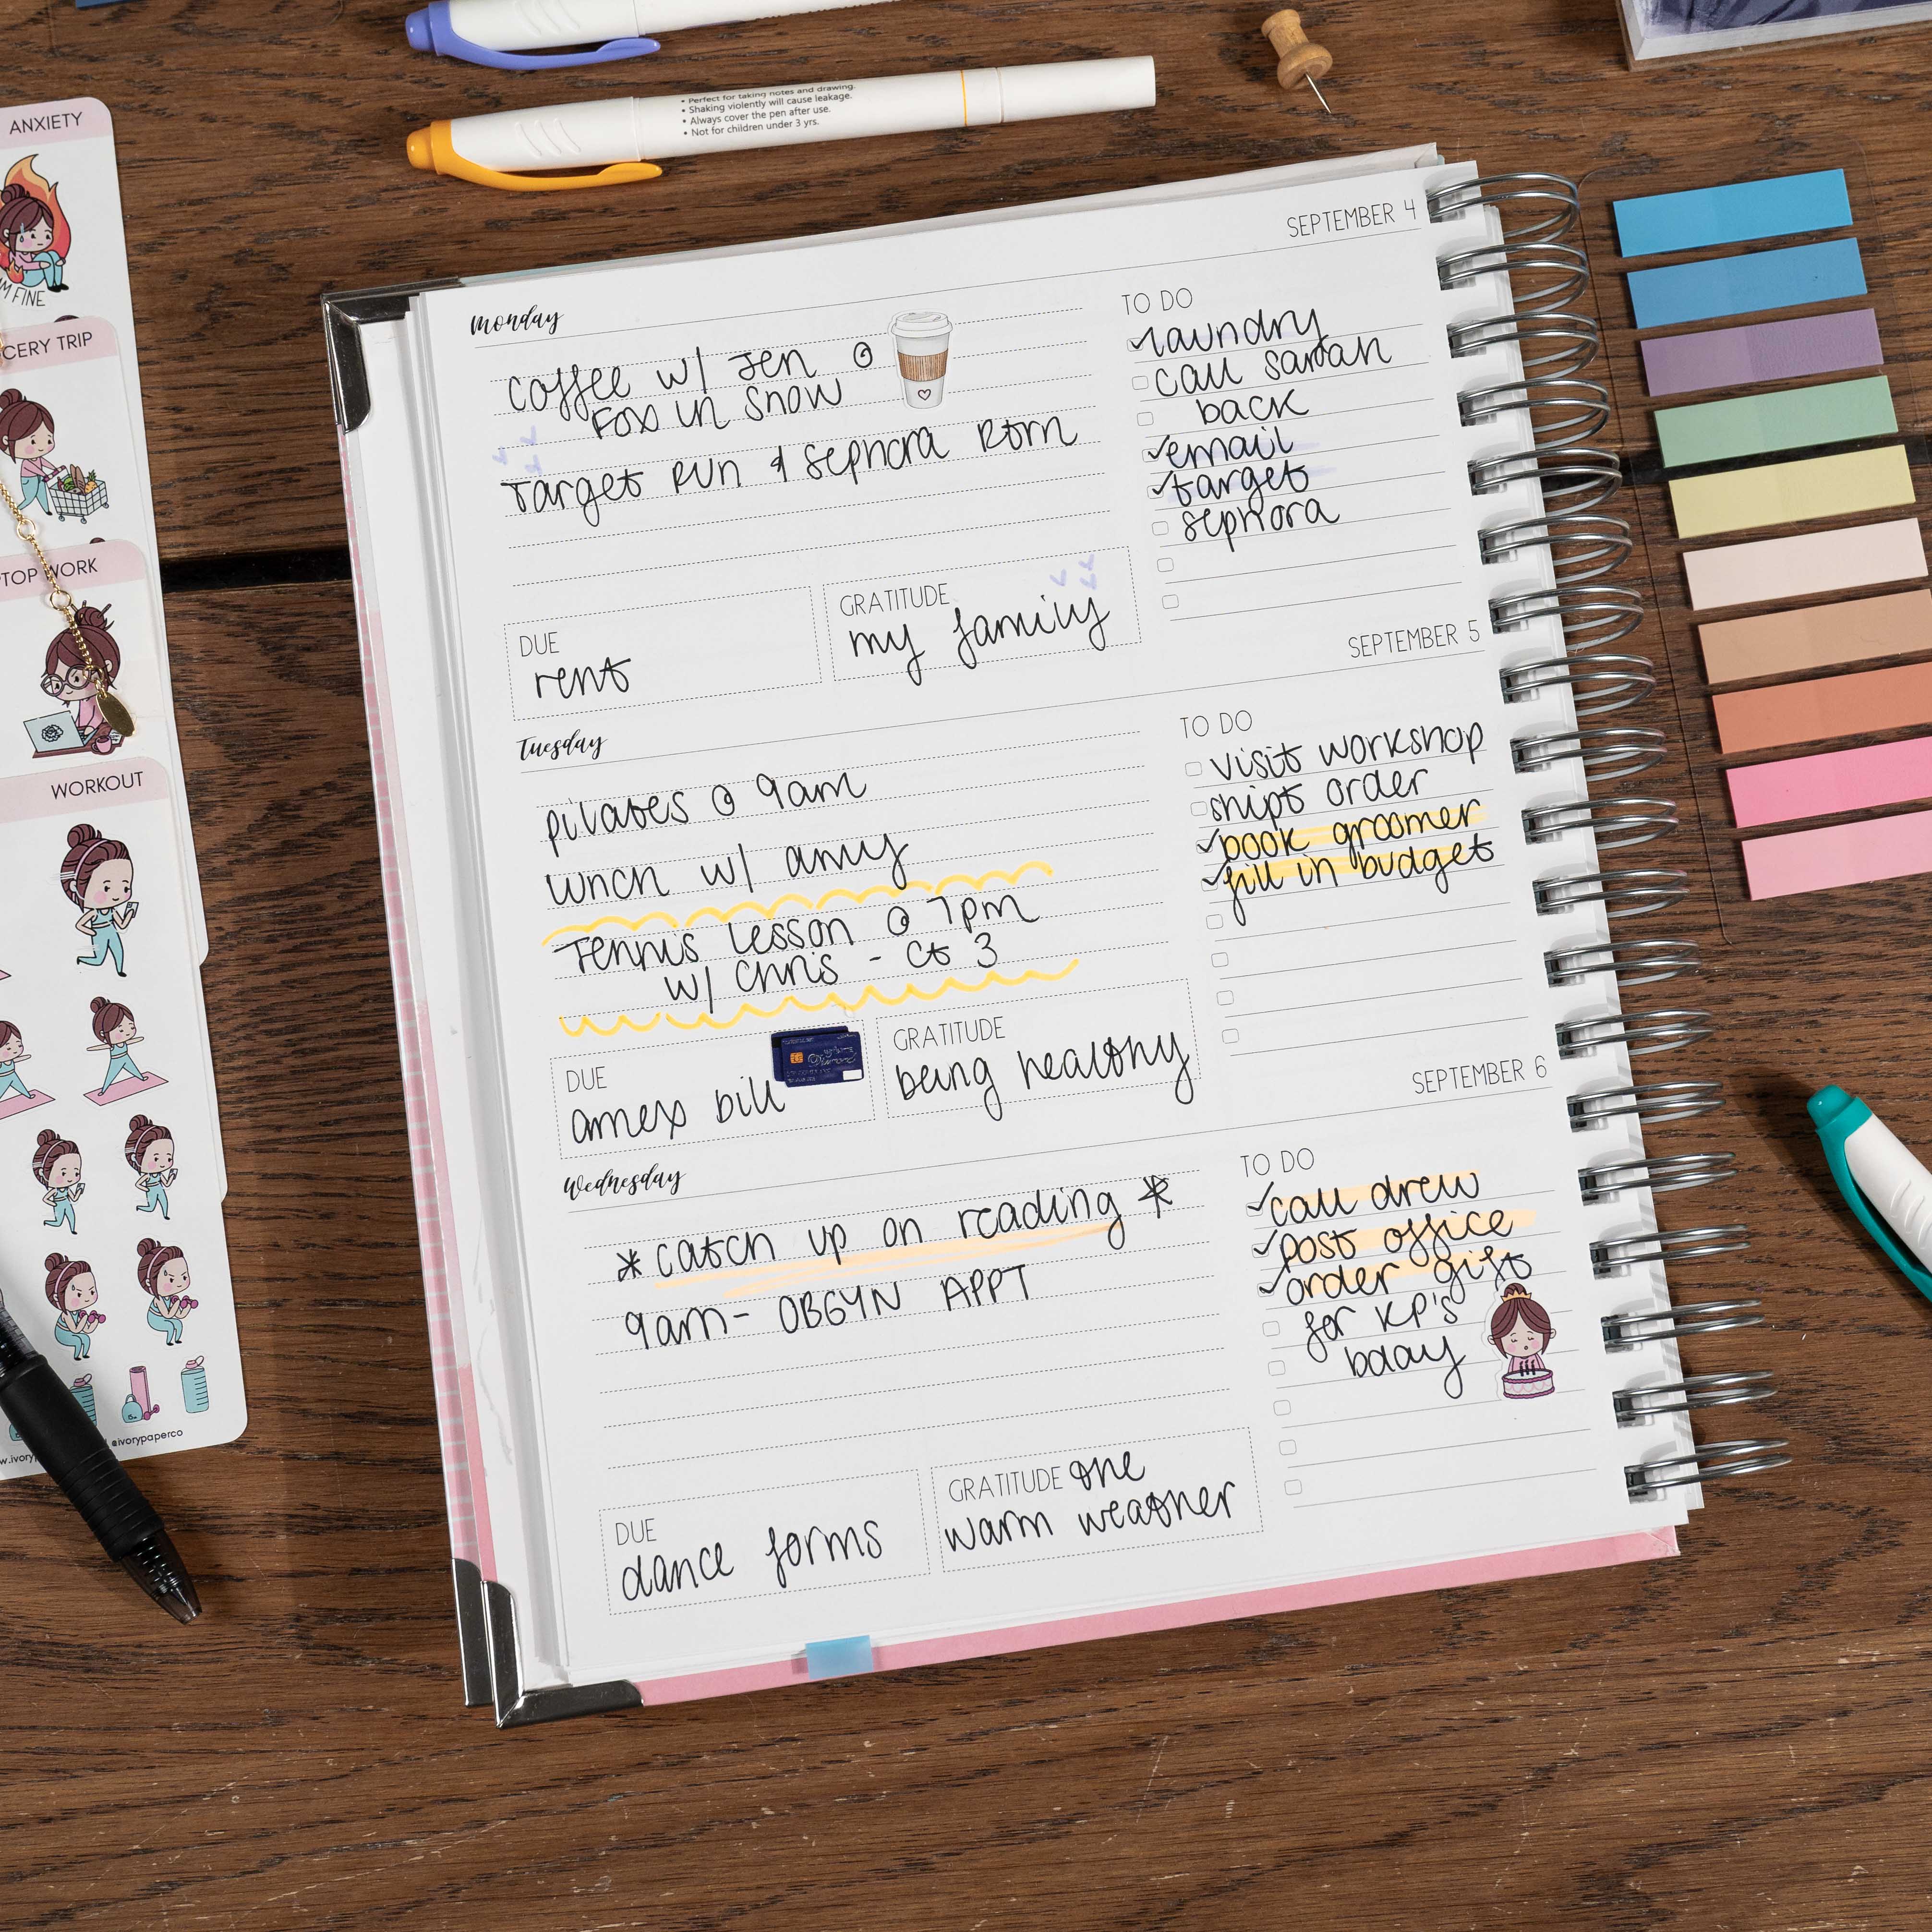 • Perfect for taking notes and drawing.
• Shaking violently will cause leakage.
• Always cover the pen after use.
• Not for children under 3 yrs.
ANXIETY
FINE
TRIP
WORK
WORKOUT
@ivorypaperco
SEPTEMBER 4
Monday
coffee w/ Jen @
Fox in Snow
Target Run & Sephora Rtrn
DUE
rent
GRATITUDE
my family
TO DO
laundry
call sarah
back
email
target
sephora
SEPTEMBER 5
Tuesday
pilates @ 9am
lunch w/ amy
Tennis Lesson @ 7pm
w/ Chris - Ct 3
DUE
amex bill
GRATITUDE
being healthy
TO DO
visit workshop
ship order
book groomer
fill in budget
SEPTEMBER 6
Wednesday
* catch up on reading *
9am - OBGYN APPT
DUE
dance forms
GRATITUDE the
warm weather
TO DO
call drew
post office
order gift
for KP's
bday